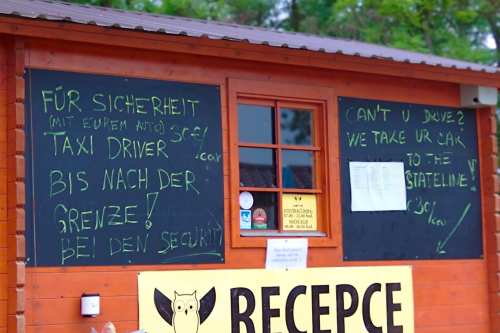 FÜR SICHERHEIT
(MIT EUREM AUTO) 30€/.car
TAXI DRIVER
BIS NACH DER
GRENZE!
BEI DEN SECURITY
CAN'T U DRIVE?
WE TAKE UR CAR
TO THE
STATELINE!
€30/.car
RECEPCE